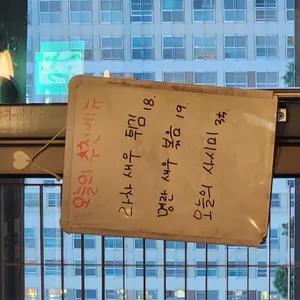 오늘의 추천메뉴
라차 새우 튀김 18.
명란 새우 볶음 19.
오늘의 사시미 3次.